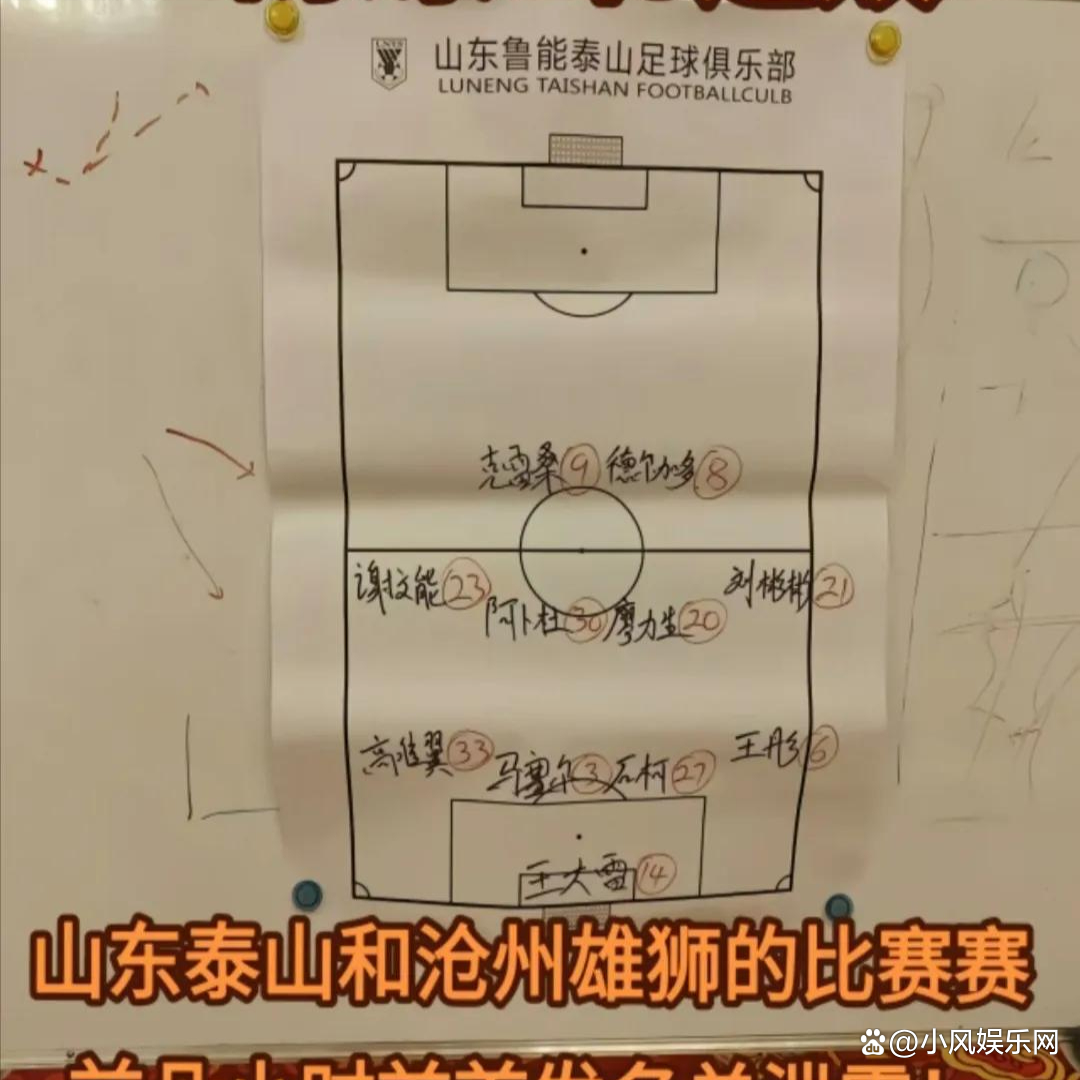 山东鲁能泰山足球俱乐部
LUNENG TAISHAN FOOTBALLCULB
克雷桑 9 德尔加多 8
谢文能 23 刘彬彬 21
阿卜杜 30 廖力生 20
高准翼 33 王彤 6
马塞尔 3 石柯 27
王大雷 14
山东泰山和沧州雄狮的比赛赛
前几小时前首发名单泄露!
@小风娱乐网